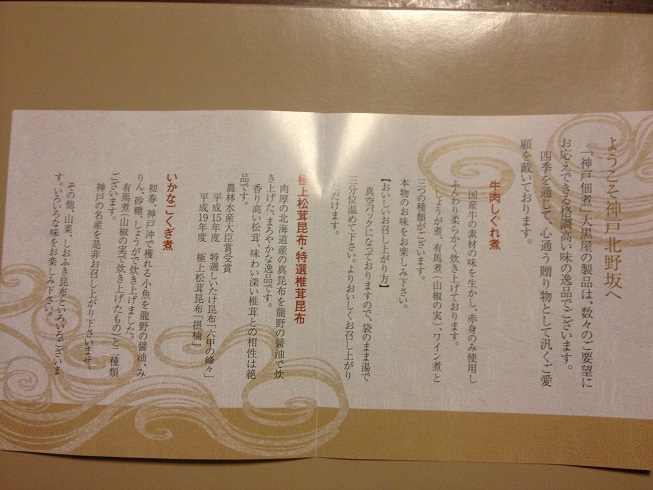 ようこそ神戸北野坂へ
「神戸佃煮」大黒屋の製品は、数々のご要望に
お応えできる格調高い味の逸品でございます。
四季を通じて、心通う贈り物として汎くご愛
顧を戴いております。
牛肉しぐれ煮
国産牛の素材の味を生かし、赤身のみ使用し
ふんわり柔らかく炊き上げております。
しょうが煮、有馬煮(山椒の実)、ワイン煮と
三つの種類がございます。
本物のお味をお楽しみ下さい。
【おいしいお召し上がり方】
真空パックになっておりますので、袋のまま湯で
三分位温めて下さい。よりおいしくお召し上がり
いただけます。
極上松茸昆布・特選椎茸昆布
肉厚の北海道産の真昆布を龍野の醤油で炊
き上げた、まろやかな逸品です。
香り高い松茸、味わい深い椎茸との相性は絶
品です。
農林水産大臣賞受賞
平成15年度 特選しいたけ昆布「六甲の峰々」
平成19年度 極上松茸昆布「摂楠」
いかなごくぎ煮
初春、神戸沖で穫れる小魚を龍野の醤油、み
りん、砂糖、しょうがで炊き上げました。
有馬煮(山椒の実で炊き上げたもの)と二種類
ございます。
神戸の名産を是非お召し上がり下さいませ。
その他、山菜、しおふき昆布といろいろございま
す。いろいろな味をお楽しみ下さい。